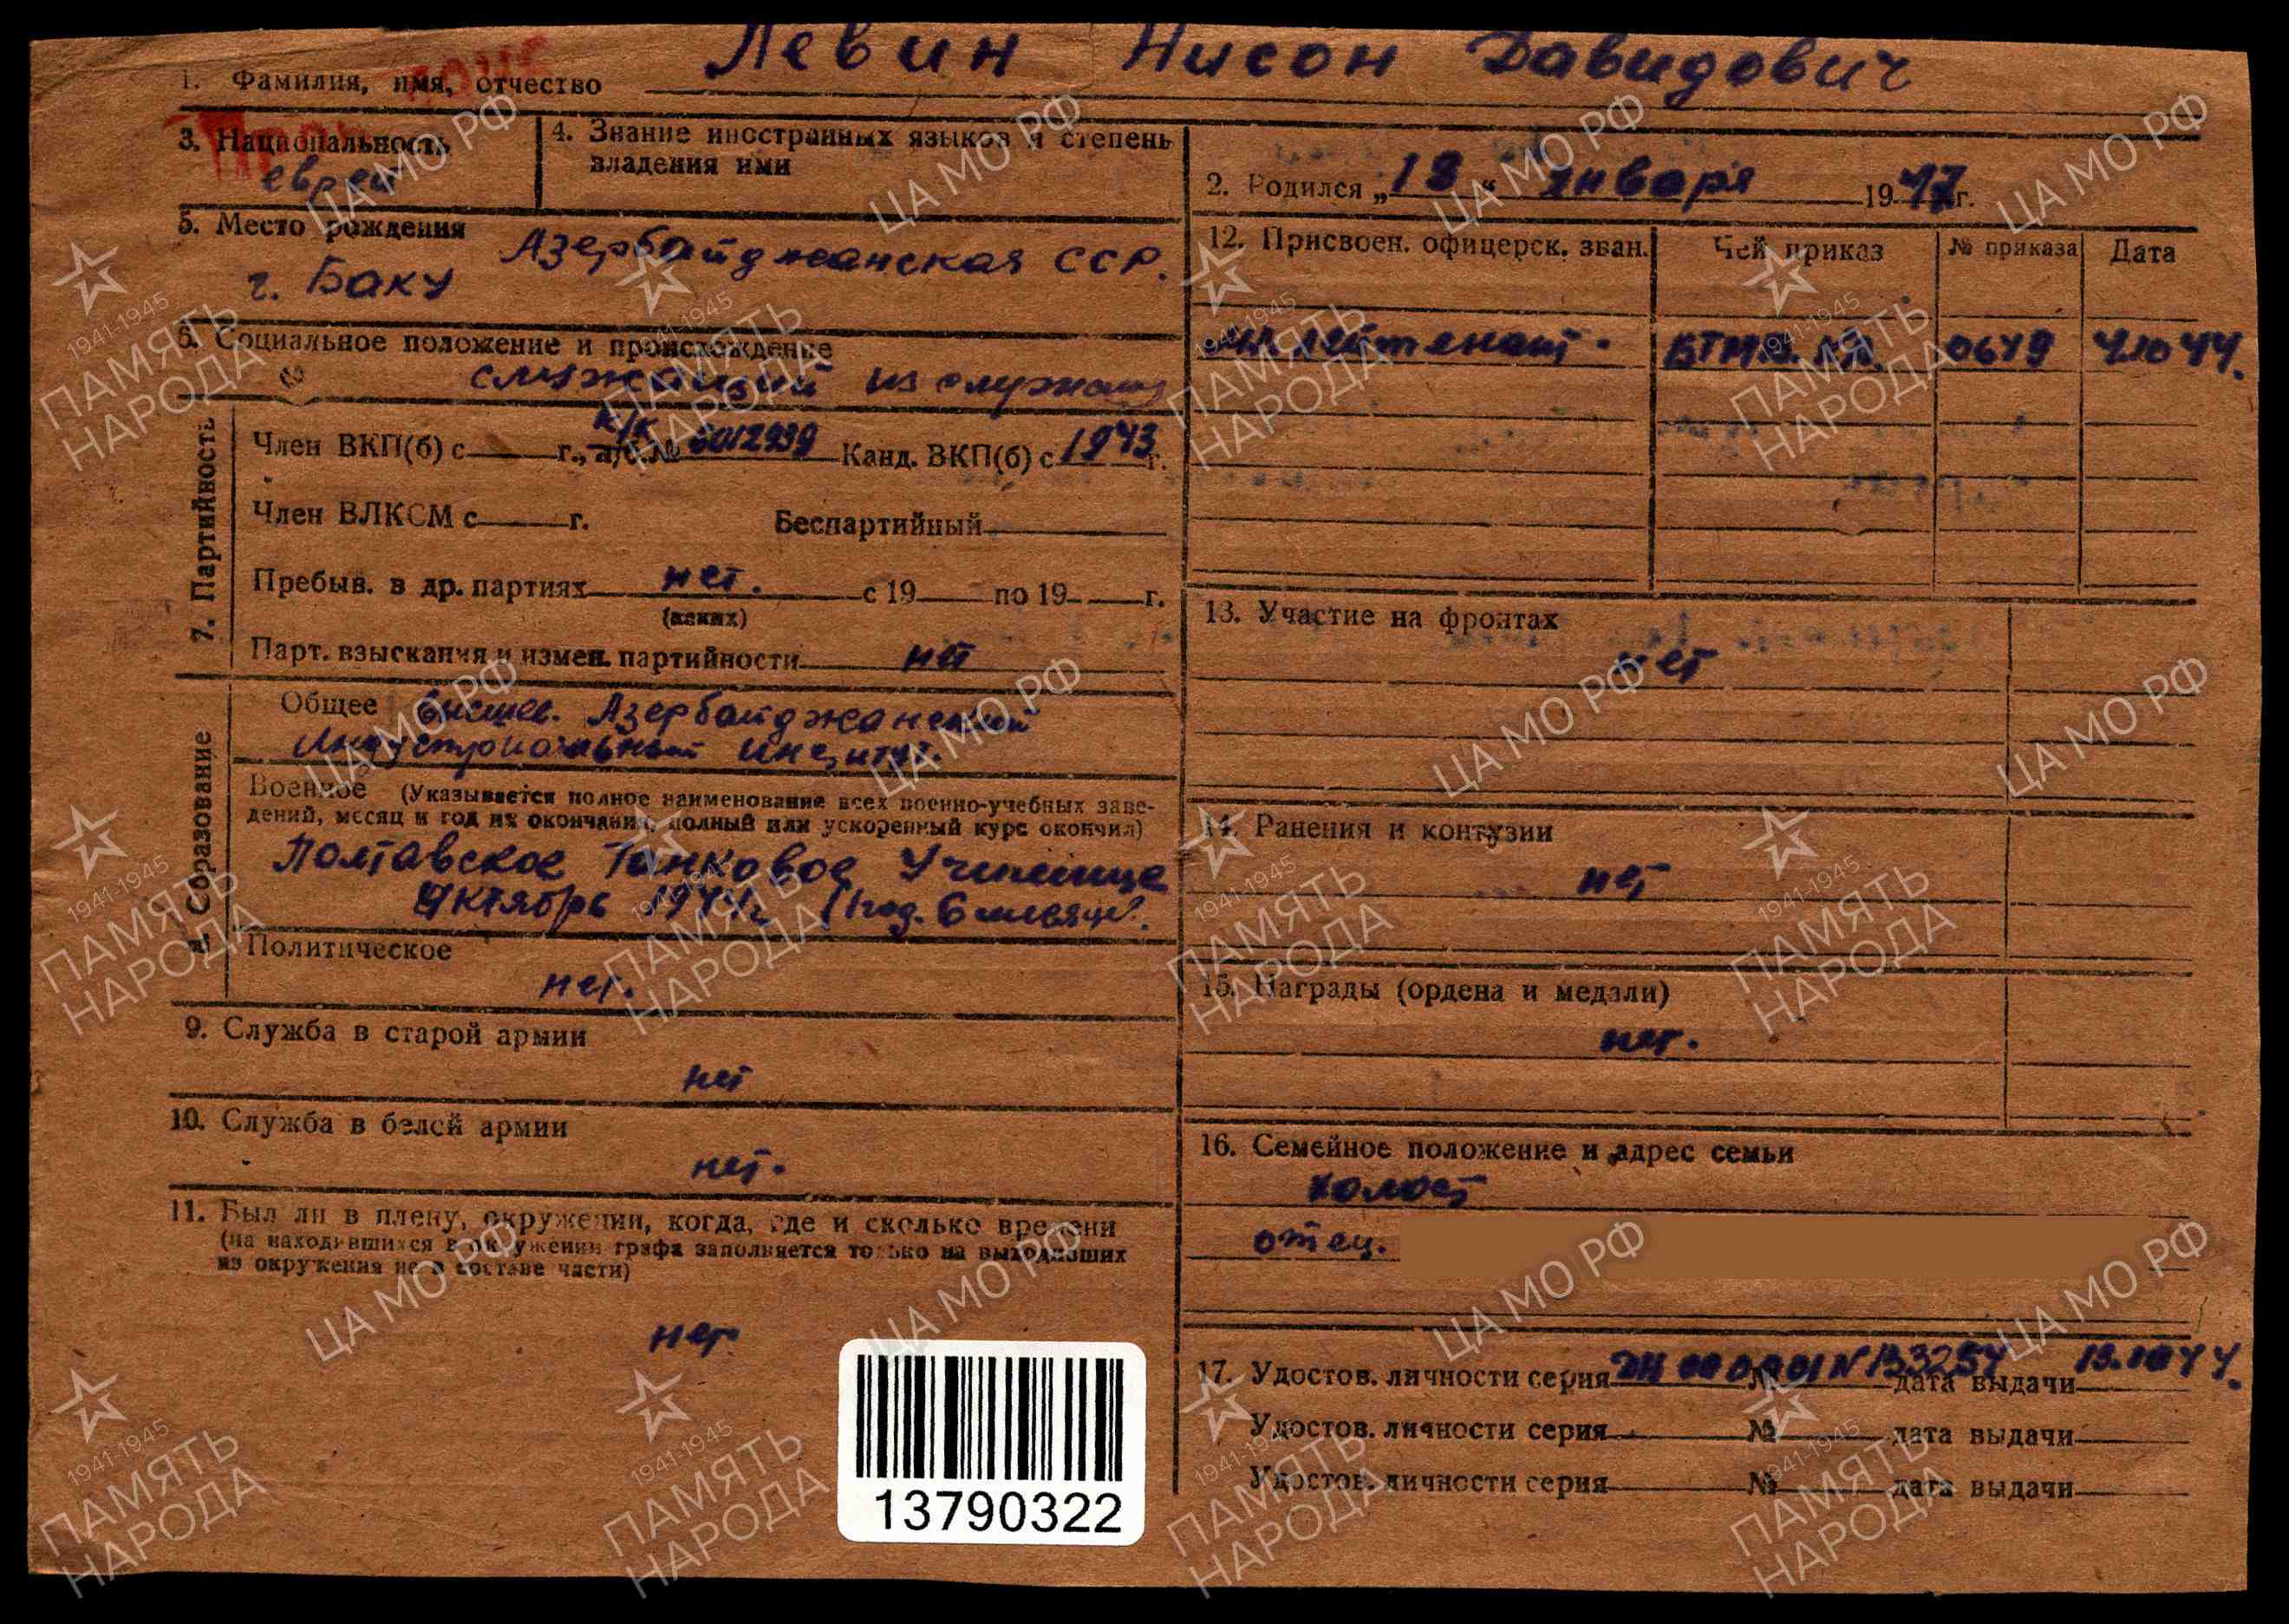 Левин Нисон Давидович
1. Фамилия, имя, отчество
3. Национальность
еврей
4. Знание иностранных языков и степень
владения ими
2. Родился „18“ января 19 г.
5. Место рождения
Азербайджанская ССР.
г. Баку
6. Социальное положение и происхождение
служащий из
7. Партийность
Член ВКП(б) с г., к/к № 6012939 Канд. ВКП(б) с 1943 г.
Член ВЛКСМ с г. Беспартийный
Пребыв. в др. партиях нет. с 19 по 19 г.
(каких)
Парт. взыскания и измен. партийности нет
Образование
Общее высшее. Азербайджанский
Индустриальный
Военное (Указывается полное наименование всех военно-учебных заве-
дений, месяц и год их окончания, полный или ускоренный курс окончил)
Полтавское Танковое Училище
Октябрь 1944г (1 год. 6
Политическое
нет.
9. Служба в старой армии
нет
10. Служба в белой армии
нет.
11. Был ли в плену, окружении, когда, где и сколько времени
(на находившихся в окружении графа заполняется только на выходивших
из окружения не в составе части)
нет
12. Присвоен. офицерск. зван. Чей приказ № приказа Дата
мл лейтенант. 0649
13. Участие на фронтах
нет
14. Ранения и контузии
нет
15. Награды (ордена и медали)
нет.
16. Семейное положение и адрес семьи
холост
отец.
17. Удостов. личности серия № дата выдачи
Удостов. личности серия № дата выдачи
Удостов. личности серия № дата выдачи
13790322
1941-1945
ПАМЯТЬ
НАРОДА
ЦА МО РФ